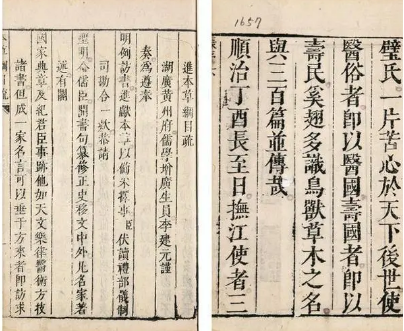 1657
璧氏一片苦心於天下後世使
醫俗者即以醫國壽國者即以
壽民奚翅多識鳥獸草木之名
與三百篇並傳哉
順治丁酉長至日撫江使者三
進本草綱目疏
湖廣黃州府儒學增廣生員李建元謹
奏為遵奉
明例訪書進獻本草以備采擇事臣伏讀禮部儀制
司勘合一欵恭請
聖明勅儒臣開書局纂修正史移文中外凡名家著
述有關
國家典章及紀君臣事跡他如天文樂律醫術方技
諸書但成一家名言可以垂于方來者即訪求